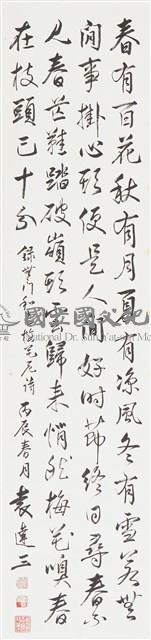 春有百花秋有月夏有涼風冬有雪若無
閒事掛心頭便是人間好时節終日尋春不
見春芒鞋踏破嶺頭雲歸来悄然梅花嗅春
在枝頭已十分
丙辰春月
袁達三
國立國父紀念館
National Dr. Sun Yat-sen Memorial Hall